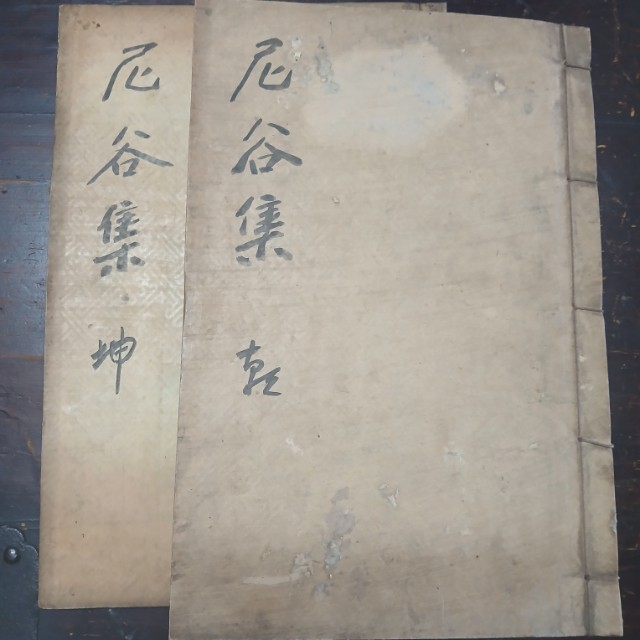 尼谷集 乾
尼谷集 坤